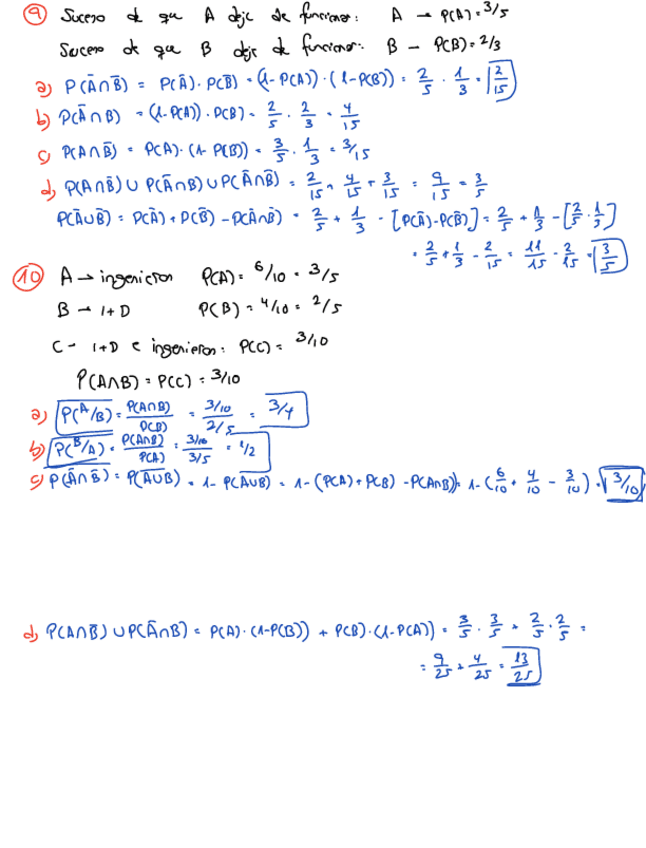 9 Suceso de que A deje de funcionar: A → P(A) = 3/5
Suceso de que B deje de funcionar: B – P(B) = 2/3
a) P(Ā∩B̄) = P(Ā)·P(B̄) = (1-P(A))·(1-P(B)) = 2/5 · 1/3 = 2/15
b) P(Ā∩B) = (1-P(A))·P(B) = 2/5 · 2/3 = 4/15
c) P(A∩B̄) = P(A)·(1-P(B)) = 3/5 · 1/3 = 3/15
d) P(A∩B̄) ∪ P(Ā∩B) ∪ P(Ā∩B̄) = 2/15 + 4/15 + 3/15 = 9/15 = 3/5
P(Ā∪B̄) = P(Ā) + P(B̄) - P(Ā∩B̄) = 2/5 + 1/3 - [P(Ā)·P(B̄)] = 2/5 + 1/3 - [2/5 · 1/3]
= 2/5 + 1/3 - 2/15 = 11/15 - 2/15 = 3/5
10 A → ingenieros P(A) = 6/10 = 3/5
B → I+D P(B) = 4/10 = 2/5
C – I+D e ingenieros: P(C) = 3/10
P(A∩B) = P(C) = 3/10
a) P(A/B) = P(A∩B)/P(B) = 3/10 / 2/5 = 3/4
b) P(B/A) = P(A∩B)/P(A) = 3/10 / 3/5 = 1/2
c) P(Ā∩B̄) = P(A∪B)‾ = 1 - P(A∪B) = 1 - (P(A) + P(B) - P(A∩B)) = 1 - (6/10 + 4/10 - 3/10) = 3/10
d) P(A∩B̄) ∪ P(Ā∩B) = P(A)·(1-P(B)) + P(B)·(1-P(A)) = 3/5 · 3/5 + 2/5 · 2/5 =
= 9/25 + 4/25 = 13/25